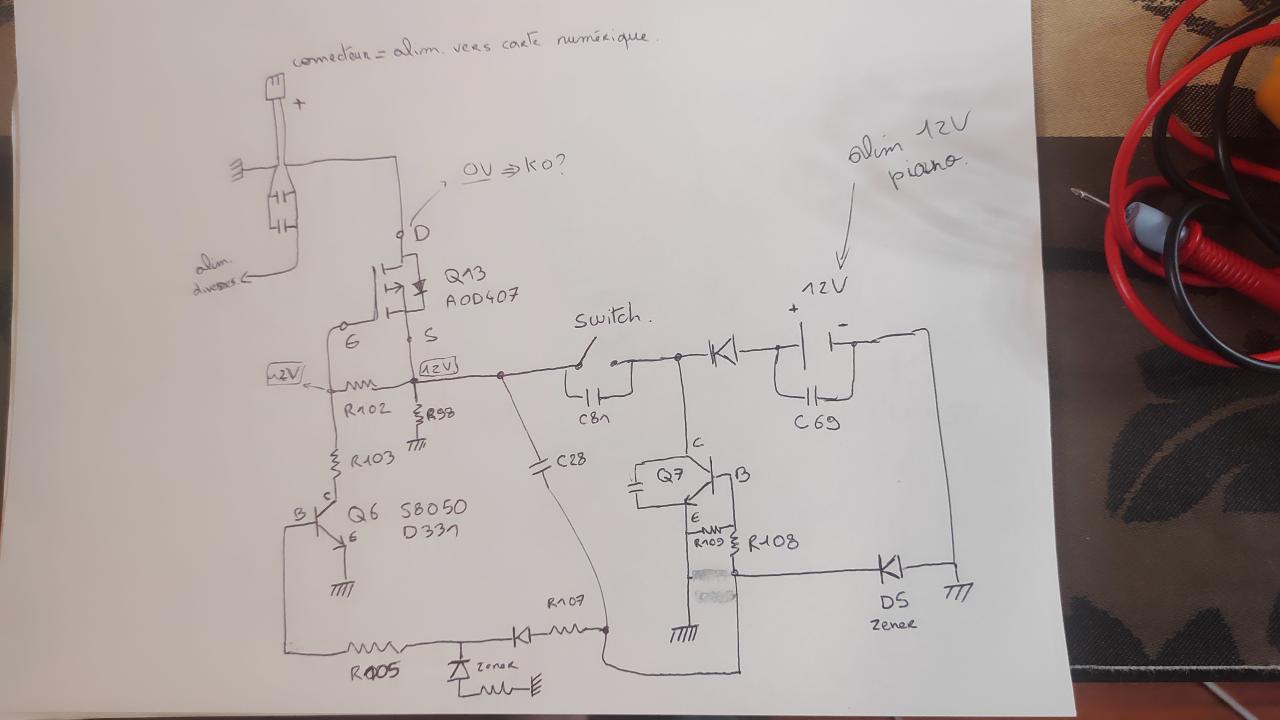 connecteur = alim. vers carte numérique.
+
OV ⇒ KO?
alim 12V
piano.
D
alim.
diverses
Q13
AOD407
G
S
12V
switch.
+
12V
-
12V
R102
R98
C81
C69
R103
C28
C
Q7
B
B
C
Q6
S8050
D331
E
E
R109
R108
D5
zener
R107
R105
zener